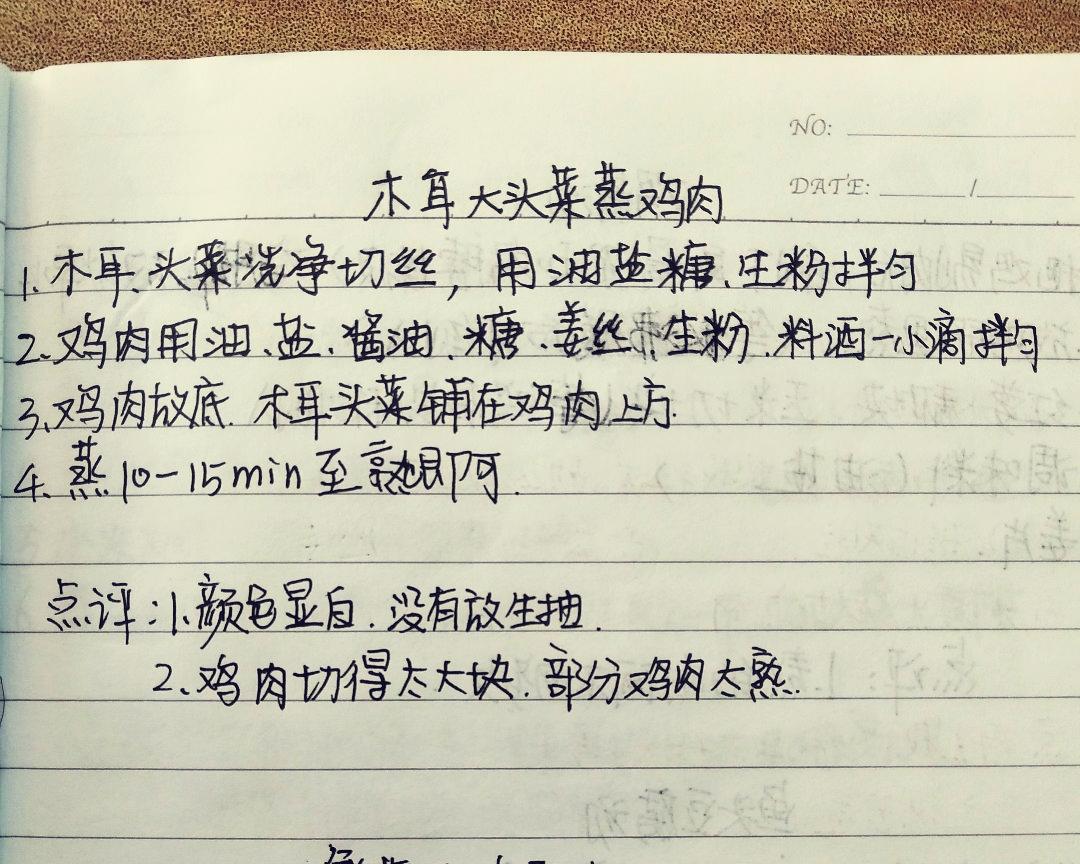 NO:
DATE: /
木耳大头菜蒸鸡肉
1.木耳、头菜洗净切丝，用油盐糖、生粉拌匀
2.鸡肉用油、盐、酱油、糖、姜丝、生粉、料酒一小滴拌匀
3.鸡肉放底.木耳头菜铺在鸡肉上方.
4.蒸10-15min至熟即可.
点评：1.颜色显白.没有放生抽.
2.鸡肉切得太大块.部分鸡肉太熟.